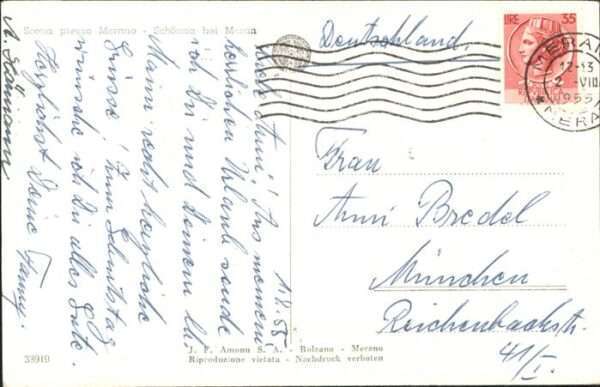 Scena presso Merano - Schönna bei Meran
1.8.55.
Liebe Anni! Aus meinem
herrlichen Urlaub sende
ich Dir und Deinem
Mann recht herzliche
Grüsse! Zum Geburtstag
wünsche ich Dir alles Gute.
Herzlichst Deine Fanny.
Deutschland.
LIRE 35
MERANO
12-13
2 -VIII
1955
MERANO
Frau
Anni Bredel
München
Reichenbachstr.
41/I.
33919
J. F. Amonn S. A. - Bolzano - Merano
Riproduzione vietata - Nachdruck verboten